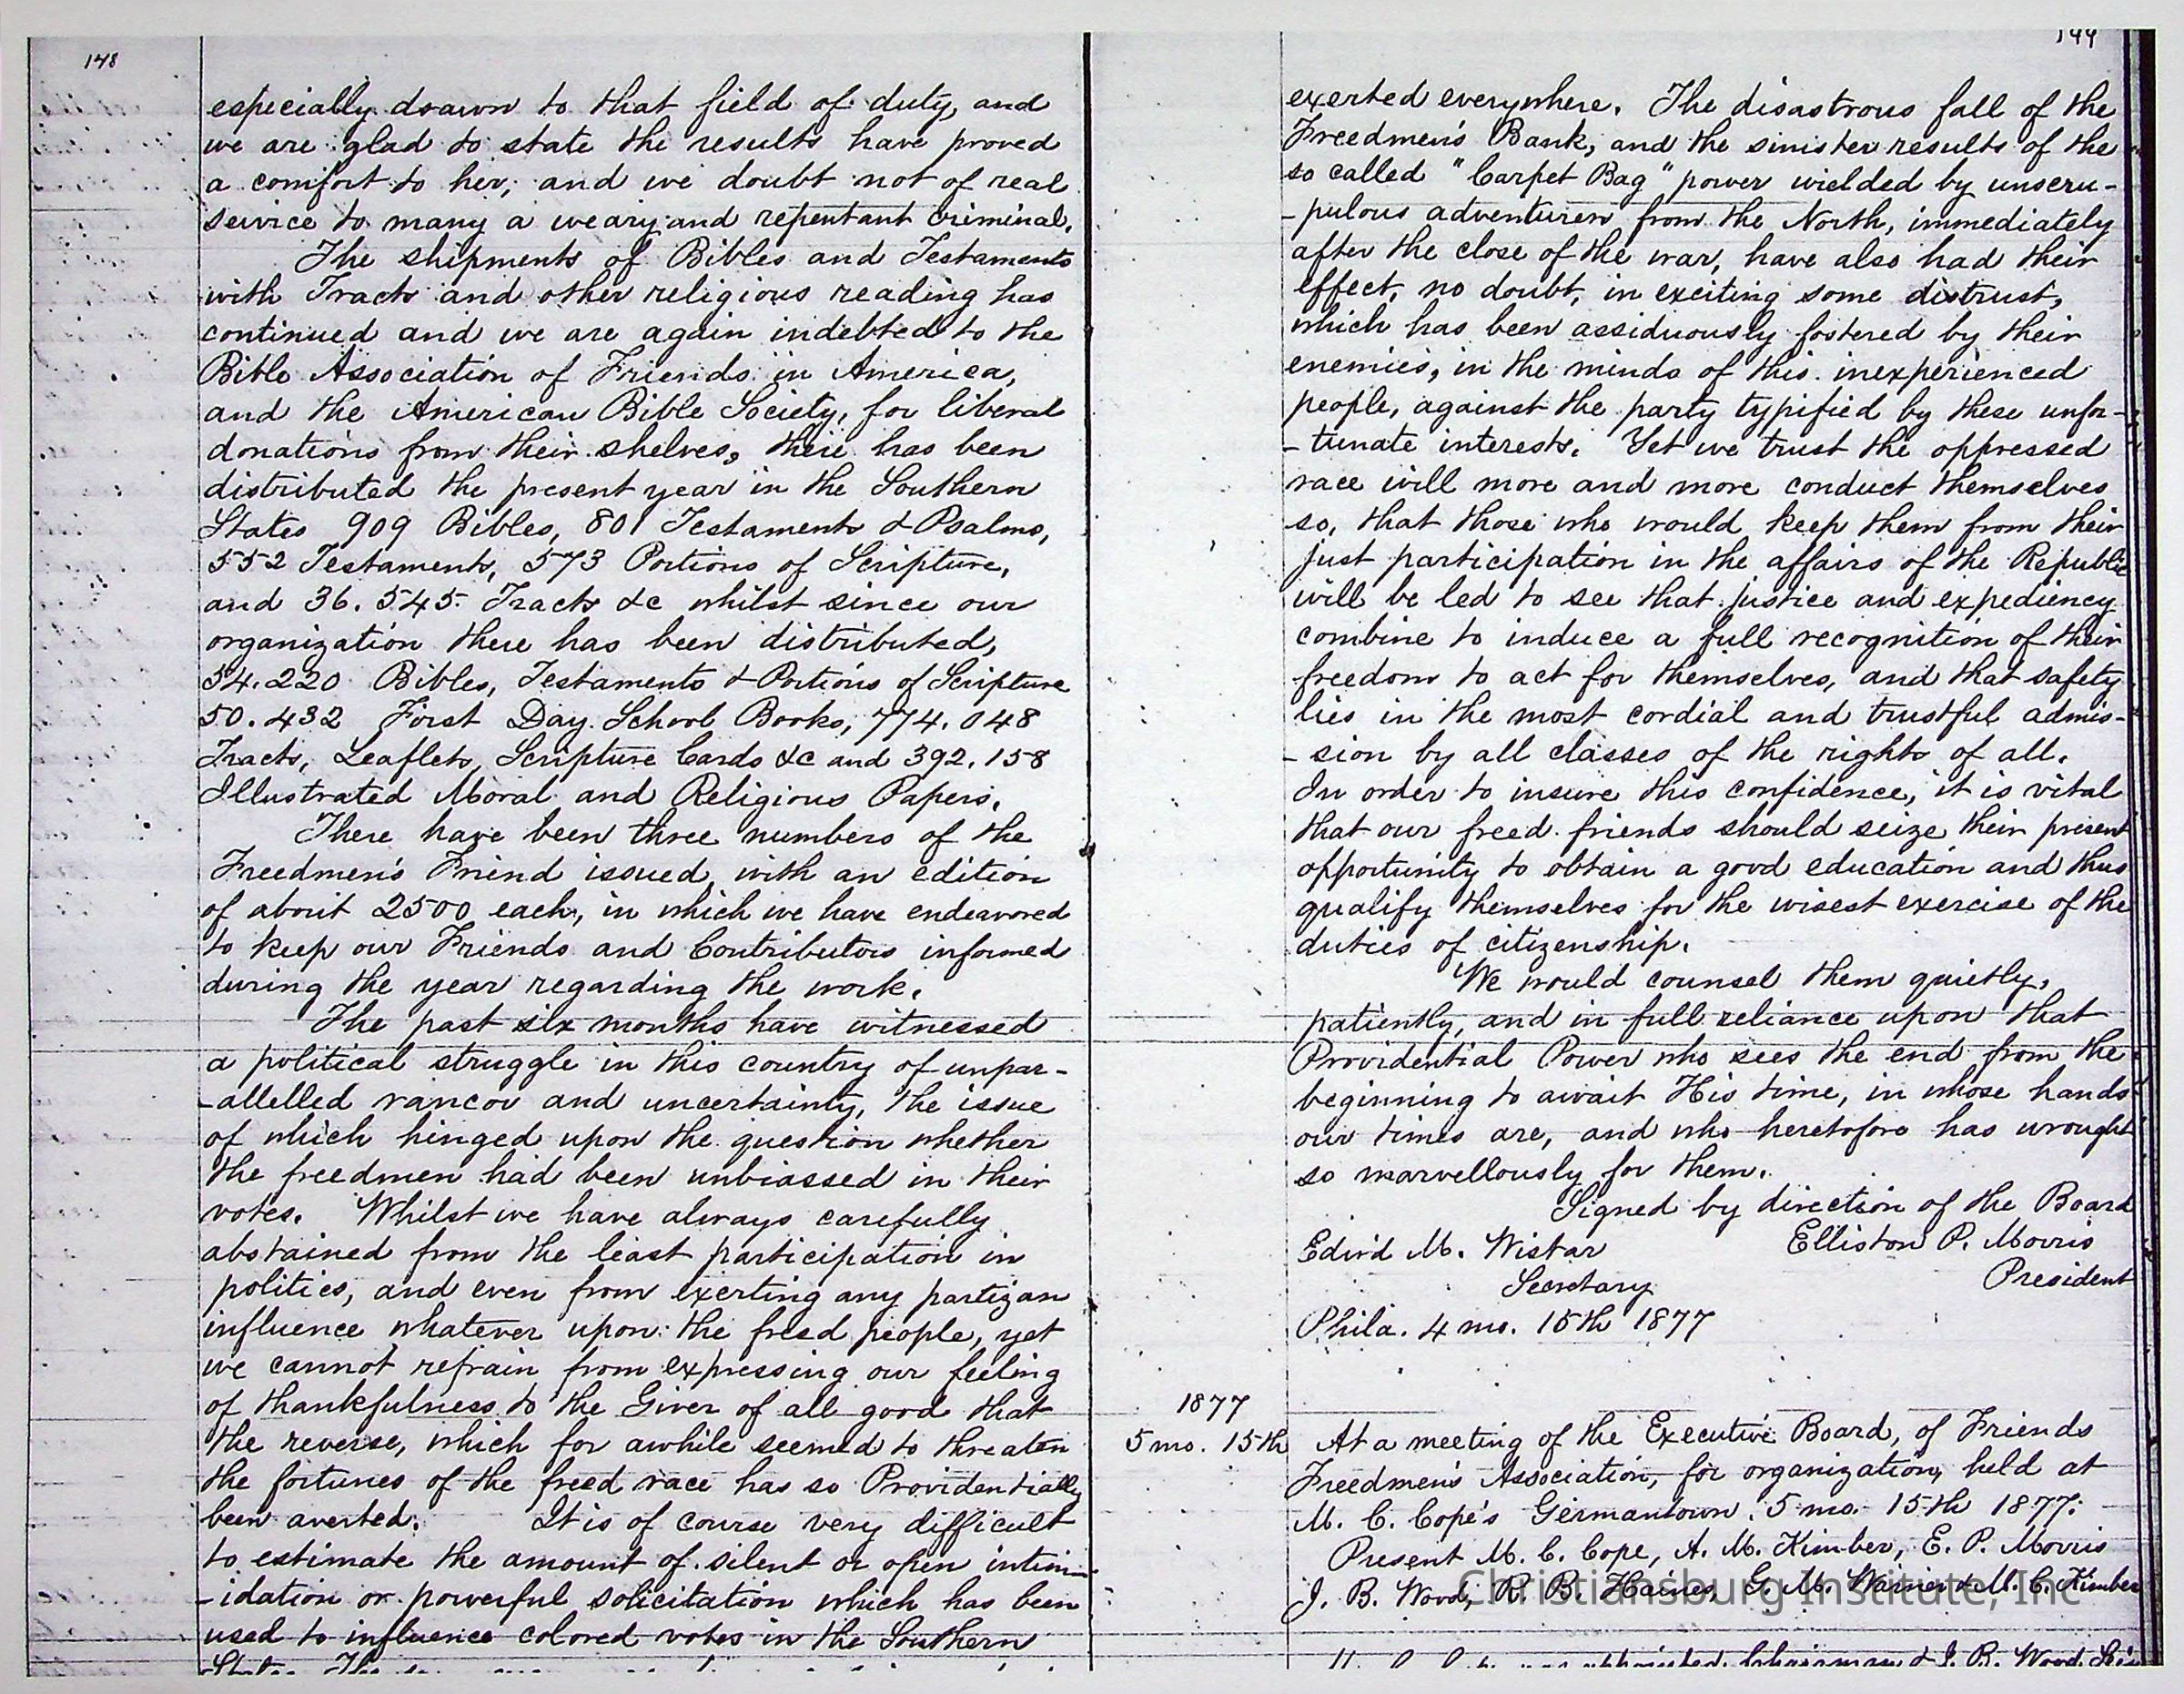 148
especially drawn to that field of duty, and
we are glad to state the results have proved
a comfort to her, and we doubt not of real
service to many a weary and repentant criminal.
The shipments of Bibles and Testaments
with Tracts and other religious reading has
continued and we are again indebted to the
Bible Association of Friends in America,
and the American Bible Society, for liberal
donations from their shelves, there has been
distributed the present year in the Southern
States 909 Bibles, 801 Testaments & Psalms,
552 Testaments, 573 Portions of Scripture,
and 36.545 Tracts &c whilst since our
organization there has been distributed,
54.220 Bibles, Testaments & Portions of Scripture
50.432 First Day School Books, 774.048
Tracts, Leaflets, Scripture Cards &c and 392.158
Illustrated Moral and Religious Papers.
There have been three numbers of the
Freedmen's Friend issued, with an edition
of about 2500 each, in which we have endeavored
to keep our Friends and Contributors informed
during the year regarding the work.
The past six months have witnessed
a political struggle in this country of unpar-
-allelled rancor and uncertainty, the issue
of which hinged upon the question whether
the freedmen had been unbiassed in their
votes. Whilst we have always carefully
abstained from the least participation in
politics, and even from exerting any partizan
influence whatever upon the freed people, yet
we cannot refrain from expressing our feeling
of thankfulness to the Giver of all good that
the reverse, which for awhile seemed to threaten
the fortunes of the freed race has so Providentially
been averted. It is of course very difficult
to estimate the amount of silent or open intim-
-idation or powerful solicitation which has been
used to influence colored votes in the Southern
149
exerted everywhere. The disastrous fall of the
Freedmen's Bank, and the sinister results of the
so called "Carpet Bag" power wielded by unscru-
-pulous adventurers from the North, immediately
after the close of the war, have also had their
effect, no doubt, in exciting some distrust,
which has been assiduously fostered by their
enemies, in the minds of this inexperienced
people, against the party typified by these unfor-
-tunate interests. Yet we trust the oppressed
race will more and more conduct themselves
so, that those who would keep them from their
just participation in the affairs of the Republic
will be led to see that justice and expediency
combine to induce a full recognition of their
freedom to act for themselves, and that safety
lies in the most cordial and trustful admis-
-sion by all classes of the rights of all.
In order to insure this confidence, it is vital
that our freed friends should seize their present
opportunity to obtain a good education and thus
qualify themselves for the wisest exercise of the
duties of citizenship.
We would counsel them quietly,
patiently, and in full reliance upon that
Providential Power who sees the end from the
beginning to await His time, in whose hands
our times are, and who heretofore has wrought
so marvellously for them.
Signed by direction of the Board
Edw'd M. Wistar Elliston P. Morris
Secretary President
Phila. 4 mo. 15th 1877
1877
5 mo. 15th At a meeting of the Executive Board, of Friends
Freedmen's Association, for organization, held at
M. C. Cope's Germantown. 5 mo. 15th 1877.
Present M. C. Cope, A. M. Kimber, E. P. Morris
J. B. Wood, R. B. Haines, G. M. Warner & M. C. Kimber
Christiansburg Institute, Inc
appointed Chairman & J. B. Wood